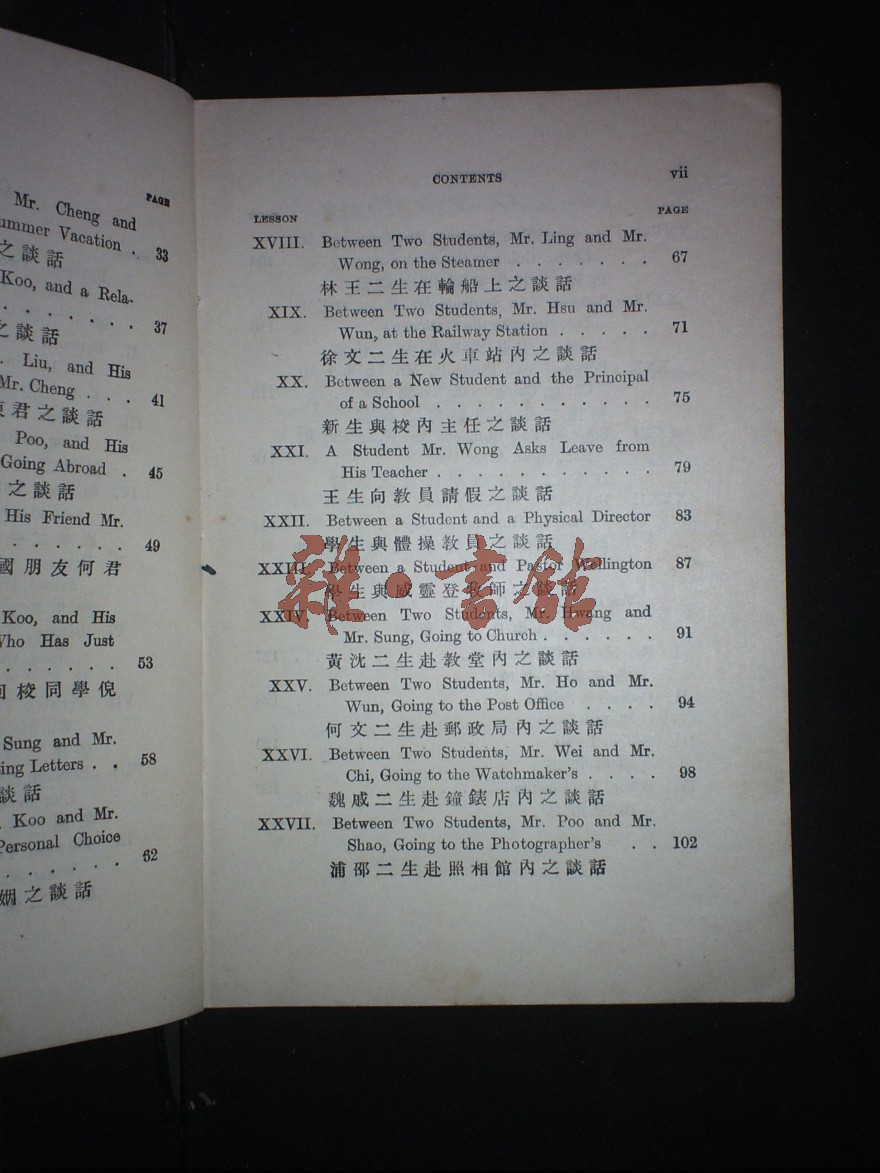 PAGE
Mr. Cheng and
Summer Vacation . 33
之談話
Koo, and a Rela-
37
之談話
Liu, and His
Mr. Cheng . . . 41
君之談話
Poo, and His
Going Abroad . 45
之談話
His Friend Mr.
49
國朋友何君
Koo, and His
Who Has Just
53
校同學倪
Sung and Mr.
ing Letters . . 58
談話
Koo and Mr.
Personal Choice
62
姻之談話
CONTENTS vii
LESSON PAGE
XVIII. Between Two Students, Mr. Ling and Mr.
Wong, on the Steamer . . . . . . . 67
林王二生在輪船上之談話
XIX. Between Two Students, Mr. Hsu and Mr.
Wun, at the Railway Station . . . . . 71
徐文二生在火車站內之談話
XX. Between a New Student and the Principal
of a School . . . . . . . . . . . 75
新生與校內主任之談話
XXI. A Student Mr. Wong Asks Leave from
His Teacher . . . . . . . . . . . 79
王生向教員請假之談話
XXII. Between a Student and a Physical Director 83
學生與體操教員之談話
XXIII. Between a Student and Pastor Wellington 87
學生與威靈登牧師之談話
雜·書館
XXIV. Between Two Students, Mr. Hwang and
Mr. Sung, Going to Church . . . . . . 91
黃沈二生赴教堂內之談話
XXV. Between Two Students, Mr. Ho and Mr.
Wun, Going to the Post Office . . . . 94
何文二生赴郵政局內之談話
XXVI. Between Two Students, Mr. Wei and Mr.
Chi, Going to the Watchmaker's . . . . 98
魏戚二生赴鐘錶店內之談話
XXVII. Between Two Students, Mr. Poo and Mr.
Shao, Going to the Photographer's . . 102
浦邵二生赴照相館內之談話